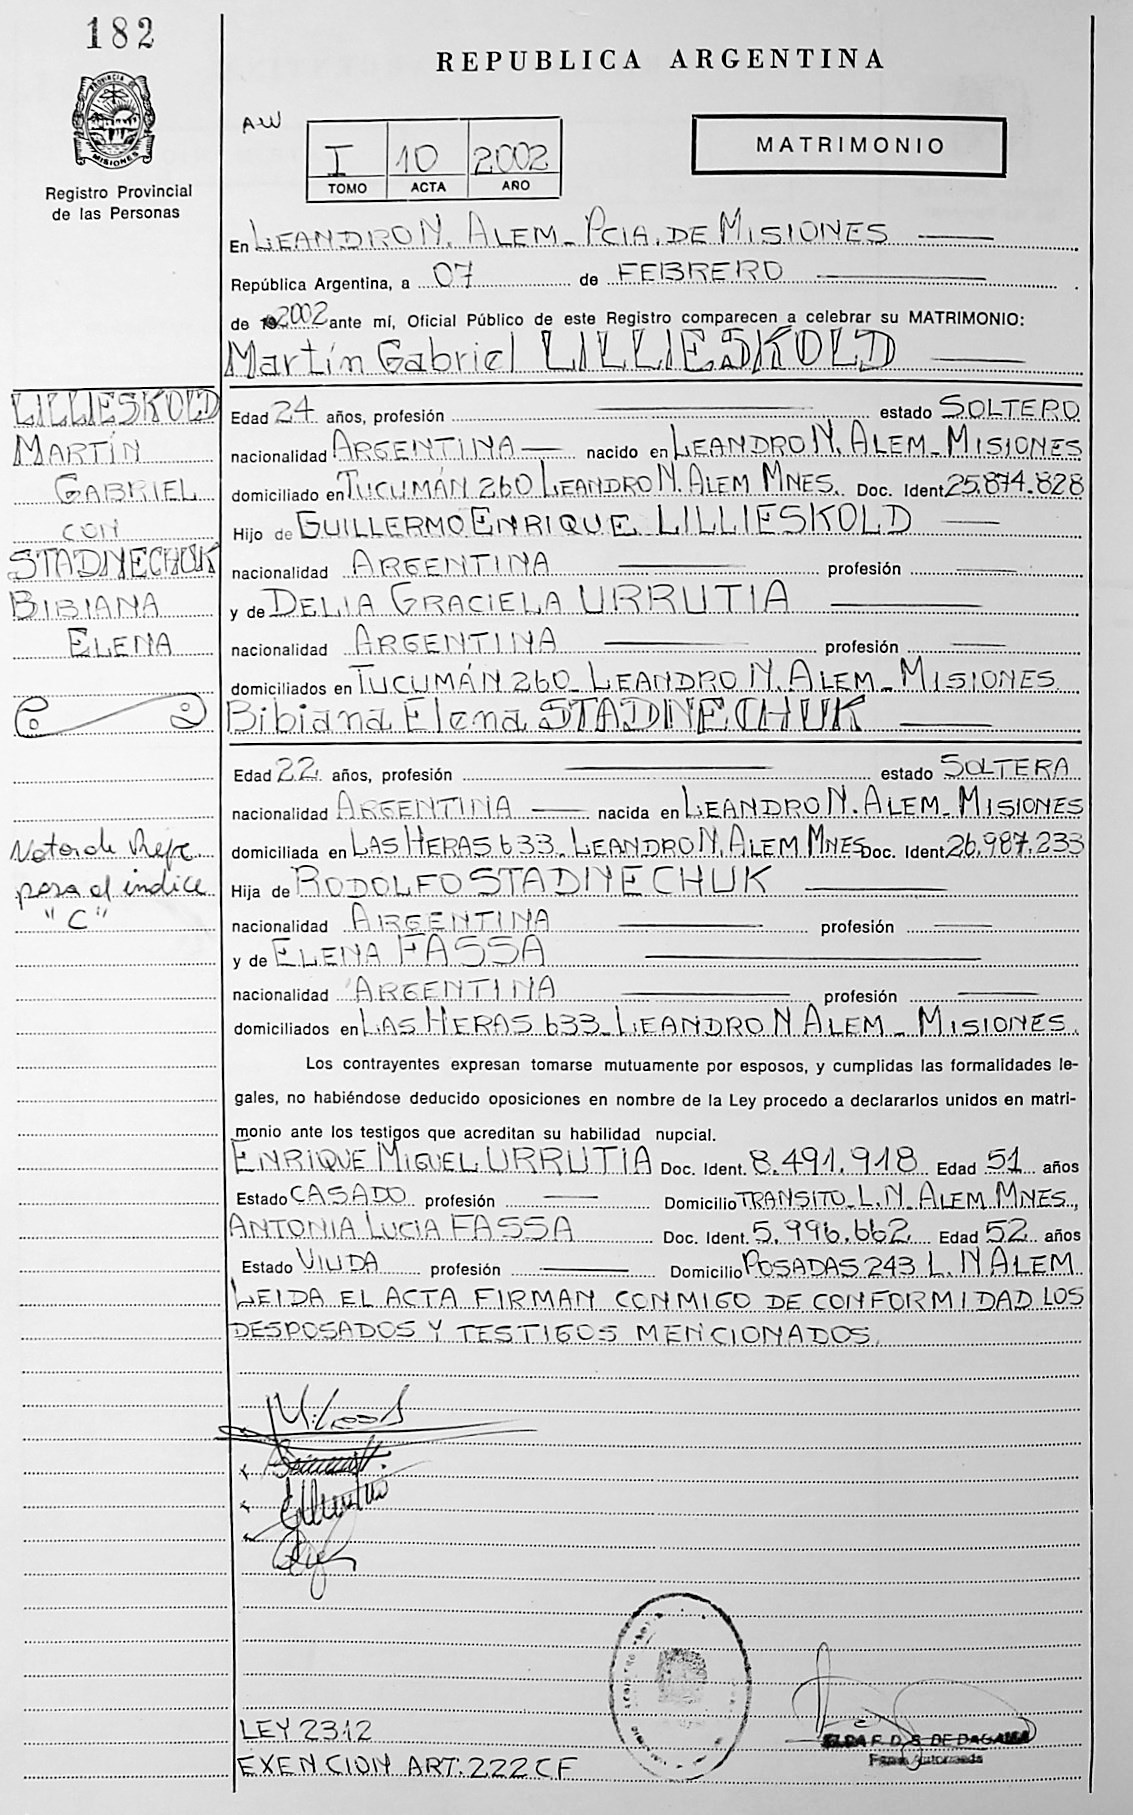 182
REPUBLICA ARGENTINA
PROVINCIA DE
MISIONES
Registro Provincial
de las Personas
AW
I 10 2002
TOMO ACTA AÑO
MATRIMONIO
En LEANDRO N. ALEM - PCIA. DE MISIONES
República Argentina, a 07 de FEBRERO
de 2002 ante mí, Oficial Público de este Registro comparecen a celebrar su MATRIMONIO:
Martín Gabriel LILLIESKOLD
LILLIESKOLD
MARTÍN
GABRIEL
CON
STADNECHUK
BIBIANA
ELENA
Edad 24 años, profesión estado SOLTERO
nacionalidad ARGENTINA nacido en LEANDRO N. ALEM - MISIONES
domiciliado en TUCUMÁN 260 LEANDRO N. ALEM MNES. Doc. Ident. 25.874.828
Hijo de GUILLERMO ENRIQUE LILLIESKOLD
nacionalidad ARGENTINA profesión
y de DELIA GRACIELA URRUTIA
nacionalidad ARGENTINA profesión
domiciliados en TUCUMÁN 260 - LEANDRO N. ALEM - MISIONES
Bibiana Elena STADNECHUK
Edad 22 años, profesión estado SOLTERA
nacionalidad ARGENTINA nacida en LEANDRO N. ALEM - MISIONES
domiciliada en LAS HERAS 633 - LEANDRO N. ALEM MNES Doc. Ident. 26.987.233
Hija de RODOLFO STADNECHUK
nacionalidad ARGENTINA profesión
y de ELENA FASSA
nacionalidad ARGENTINA profesión
domiciliados en LAS HERAS 633 - LEANDRO N ALEM - MISIONES.
Nota de
para el indice
"C"
Los contrayentes expresan tomarse mutuamente por esposos, y cumplidas las formalidades le-
gales, no habiéndose deducido oposiciones en nombre de la Ley procedo a declararlos unidos en matri-
monio ante los testigos que acreditan su habilidad nupcial.
ENRIQUE MIGUEL URRUTIA Doc. Ident. 8.491.918 Edad 51 años
Estado CASADO profesión Domicilio TRANSITO - L. N. ALEM. MNES.,
ANTONIA LUCIA FASSA Doc. Ident. 5.996.662 Edad 52 años
Estado VIUDA profesión Domicilio POSADAS 243 L. N ALEM
LEIDA EL ACTA FIRMAN CONMIGO DE CONFORMIDAD LOS
DESPOSADOS Y TESTIGOS MENCIONADOS.
LEY 2312
EXENCION ART: 222 CF
ELDA F. D. S. DE
Firma Autorizada